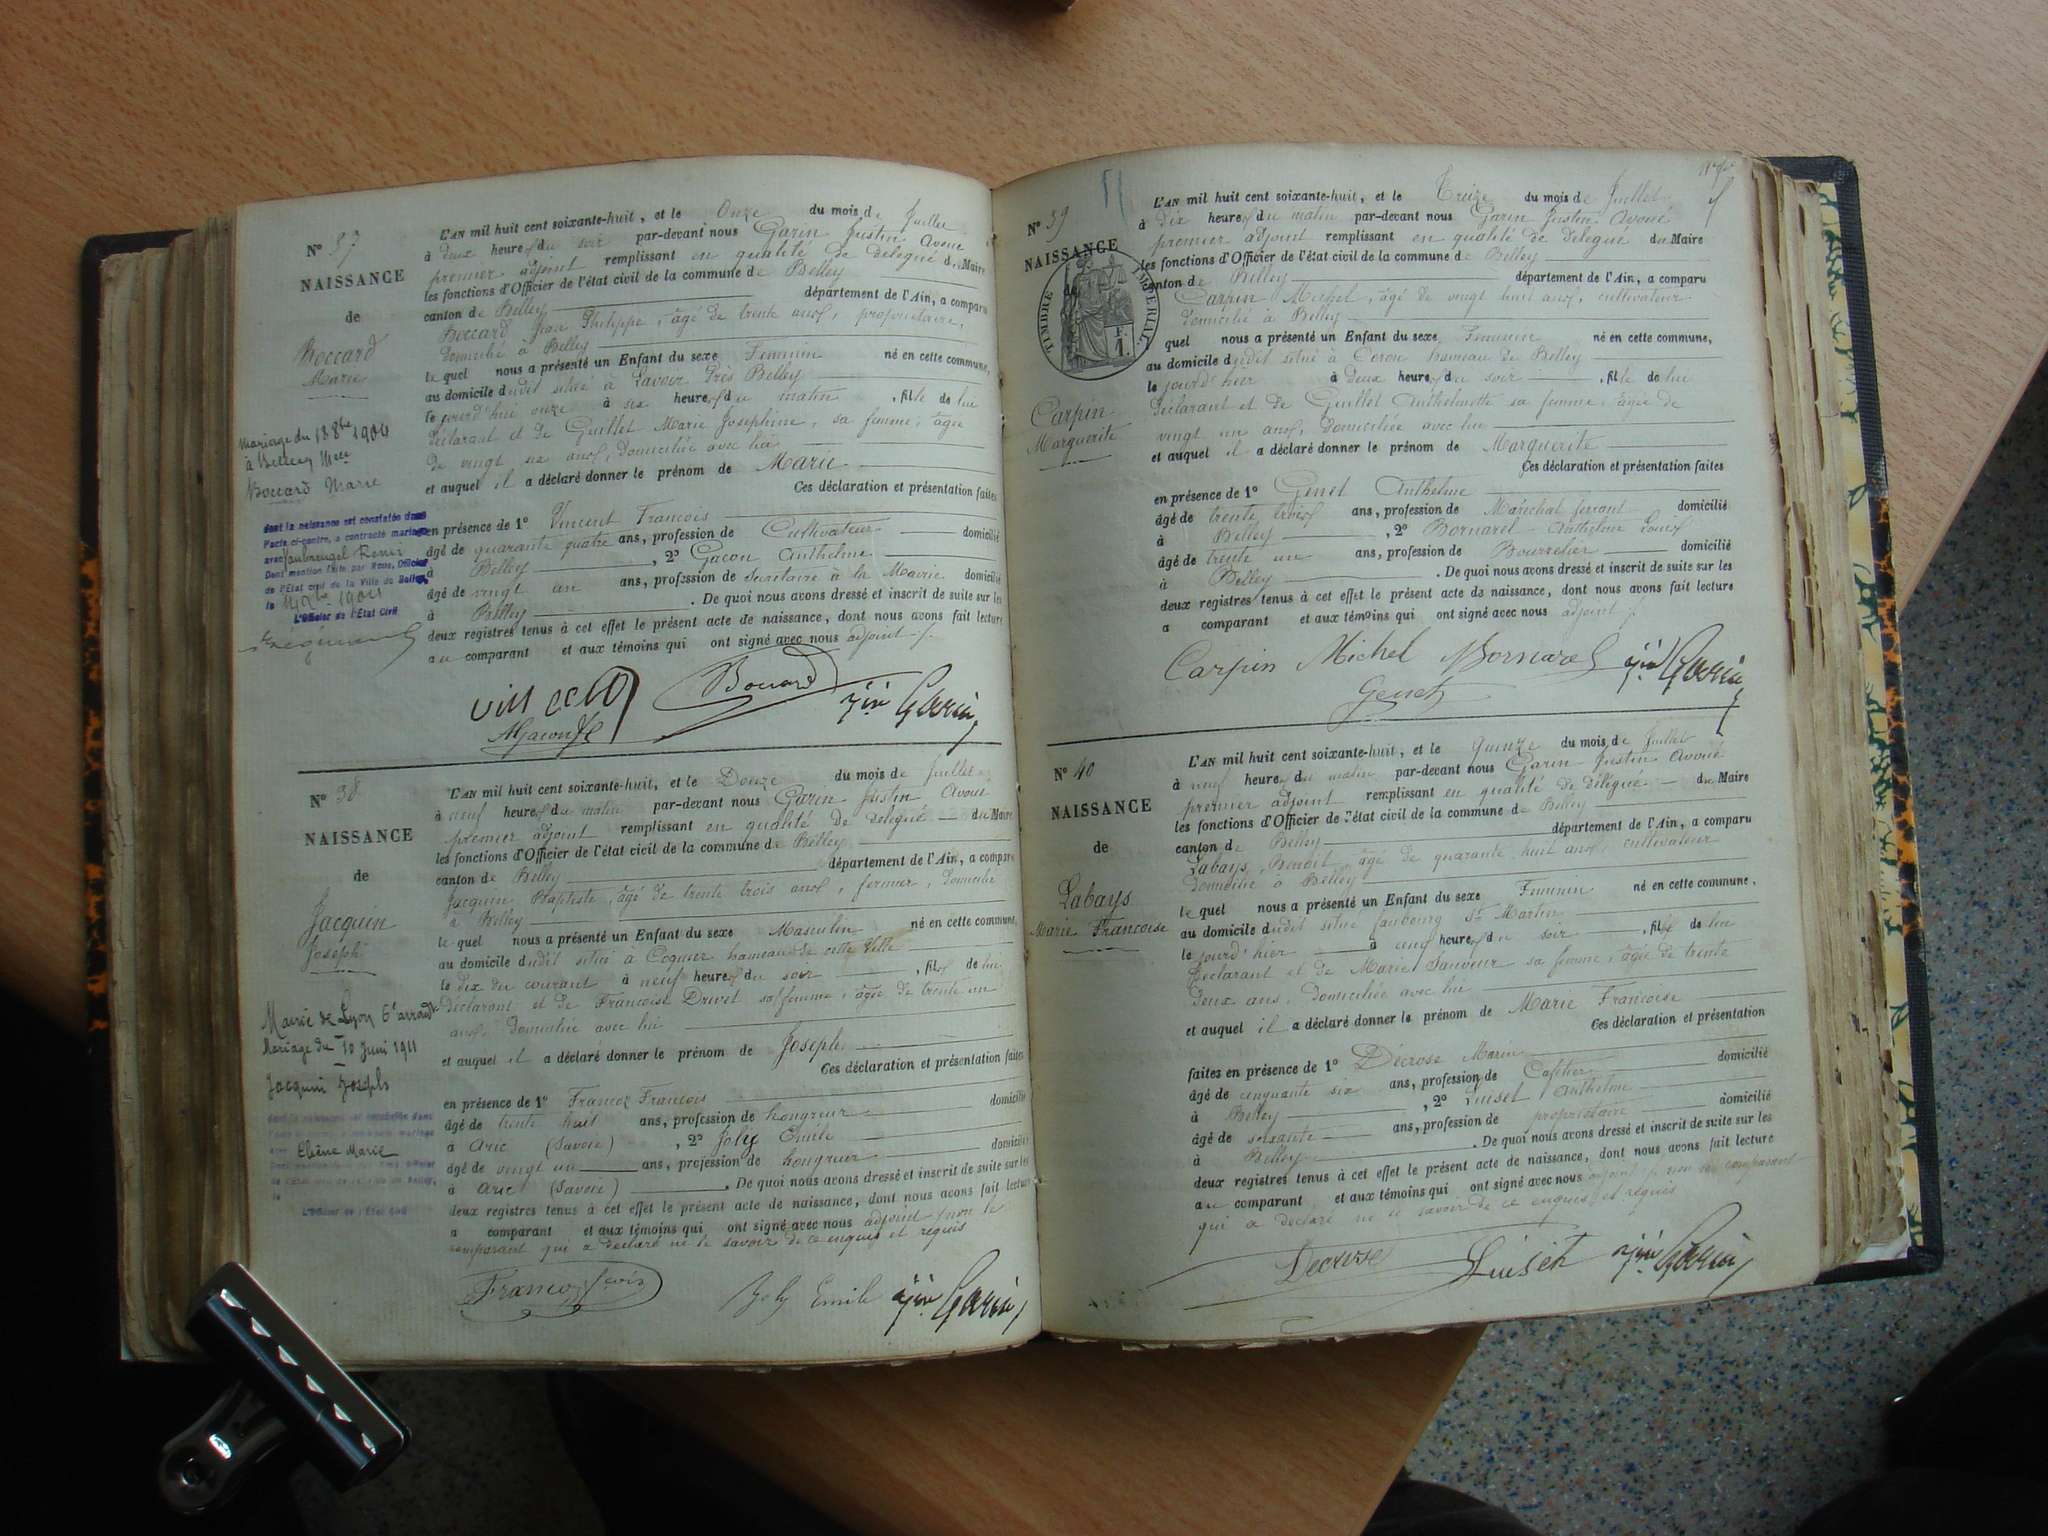 N° 37
NAISSANCE
de
Boccard
Marie
Mariage du 13 8bre 1904
à Belley Mlle
Boccard Marie
dont la naissance est constatée dans
l'acte ci-contre, a contracté mariage
avec
Dont mention faite par Nous, Officier
de l'Etat civil de la Ville de Belley,
le 1904
L'Officier de l'Etat Civil
L'AN mil huit cent soixante-huit, et le Onze du mois de Juillet
à deux heures du soir par-devant nous Garin Justin Avoué
premier adjoint remplissant en qualité de délégué du Maire
les fonctions d'Officier de l'état civil de la commune de Belley
canton de Belley département de l'Ain, a comparu
Boccard Jean Philippe, âgé de trente ans, propriétaire,
domicilié à Belley
le quel nous a présenté un Enfant du sexe Féminin né en cette commune,
au domicile dudit situé à Lavoir Près Belley
le jourd'hui onze à six heures du matin, fille de lui
déclarant et de Guillet Marie Josephine, sa femme, âgée
de vingt six ans, domiciliée avec lui
et auquel il a déclaré donner le prénom de Marie
Ces déclaration et présentation faites
en présence de 1° Vincent François
âgé de quarante quatre ans, profession de Cultivateur domicilié
à Belley, 2° Gacon Anthelme
âgé de vingt un ans, profession de secrétaire à la Mairie domicilié
à Belley. De quoi nous avons dressé et inscrit de suite sur les
deux registres tenus à cet effet le présent acte de naissance, dont nous avons fait lecture
au comparant et aux témoins qui ont signé avec nous adjoint /.
Boccard jin Garin
N° 38
NAISSANCE
de
Jacquin
Joseph
Mairie de Lyon 6e arrondt
Mariage du 10 Juin 1911
Jacquin Joseph
dont la naissance est constatée dans
Elsène Marie
L'Officier de l'Etat Civil
L'AN mil huit cent soixante-huit, et le Douze du mois de Juillet
à neuf heures du matin par-devant nous Garin Justin Avoué
premier adjoint remplissant en qualité de délégué du Maire
les fonctions d'Officier de l'état civil de la commune de Belley
canton de Belley département de l'Ain, a comparu
Jacquin Baptiste, âgé de trente trois ans, fermier, domicilié
à Belley
le quel nous a présenté un Enfant du sexe Masculin né en cette commune,
au domicile dudit situé à Coquier hameau de cette Ville
le dix du courant à neuf heures du soir, fils de lui
déclarant et de Françoise Drivet sa femme, âgée de trente un
ans, domiciliée avec lui
et auquel il a déclaré donner le prénom de Joseph
Ces déclaration et présentation faites
en présence de 1° Francoz François
âgé de trente huit ans, profession de hongreur domicilié
à Aric (Savoie), 2° Joly Emile
âgé de vingt un ans, profession de hongreur domicilié
à Aric (Savoie). De quoi nous avons dressé et inscrit de suite sur les
deux registres tenus à cet effet le présent acte de naissance, dont nous avons fait lecture
a comparant et aux témoins qui ont signé avec nous adjoint non le
comparant qui a déclaré ne le savoir de ce enquis et requis
Francoz fcois Joly Emile jin Garin
N° 39
NAISSANCE
de
TIMBRE IMPERIAL
F. 1.
Carpin
Marguerite
L'AN mil huit cent soixante-huit, et le Treize du mois de Juillet
à dix heures du matin par-devant nous Garin Justin Avoué
premier adjoint remplissant en qualité de délégué du Maire
les fonctions d'Officier de l'état civil de la commune de Belley
canton de Belley département de l'Ain, a comparu
Carpin Michel, âgé de vingt huit ans, cultivateur
domicilié à Belley
le quel nous a présenté un Enfant du sexe Féminin né en cette commune,
au domicile dudit situé à Coron hameau de Belley
le jourd'hier à deux heures du soir, fille de lui
déclarant et de Guillet Anthelmette sa femme, âgée de
vingt un ans, domiciliée avec lui
et auquel il a déclaré donner le prénom de Marguerite
Ces déclaration et présentation faites
en présence de 1° Genet Anthelme
âgé de trente trois ans, profession de Maréchal ferrant domicilié
à Belley, 2° Bornarel Anthelme Louis
âgé de trente un ans, profession de Bourrelier domicilié
à Belley. De quoi nous avons dressé et inscrit de suite sur les
deux registres tenus à cet effet le présent acte de naissance, dont nous avons fait lecture
a comparant et aux témoins qui ont signé avec nous adjoint /.
Carpin Michel Bornarel jin Garin
Genet
N° 40
NAISSANCE
de
Labays
Marie Françoise
L'AN mil huit cent soixante-huit, et le Quinze du mois de Juillet
à neuf heures du matin par-devant nous Garin Justin Avoué
premier adjoint remplissant en qualité de délégué du Maire
les fonctions d'Officier de l'état civil de la commune de Belley
canton de Belley département de l'Ain, a comparu
Labays Benoît, âgé de quarante huit ans, cultivateur
domicilié à Belley
le quel nous a présenté un Enfant du sexe Féminin né en cette commune,
au domicile dudit situé faubourg St Martin
le jourd'hier à cinq heures du soir, fille de lui
déclarant et de Marie Sauveur sa femme, âgée de trente
deux ans, domiciliée avec lui
et auquel il a déclaré donner le prénom de Marie Françoise
Ces déclaration et présentation
faites en présence de 1° Décrose Marin
âgé de cinquante six ans, profession de Cafetier domicilié
à Belley, 2° Luiset Anthelme
âgé de soixante ans, profession de propriétaire domicilié
à Belley. De quoi nous avons dressé et inscrit de suite sur les
deux registres tenus à cet effet le présent acte de naissance, dont nous avons fait lecture
au comparant et aux témoins qui ont signé avec nous adjoint non le comparant
qui a déclaré ne le savoir de ce enquis et requis
Decrose Luiset jin Garin